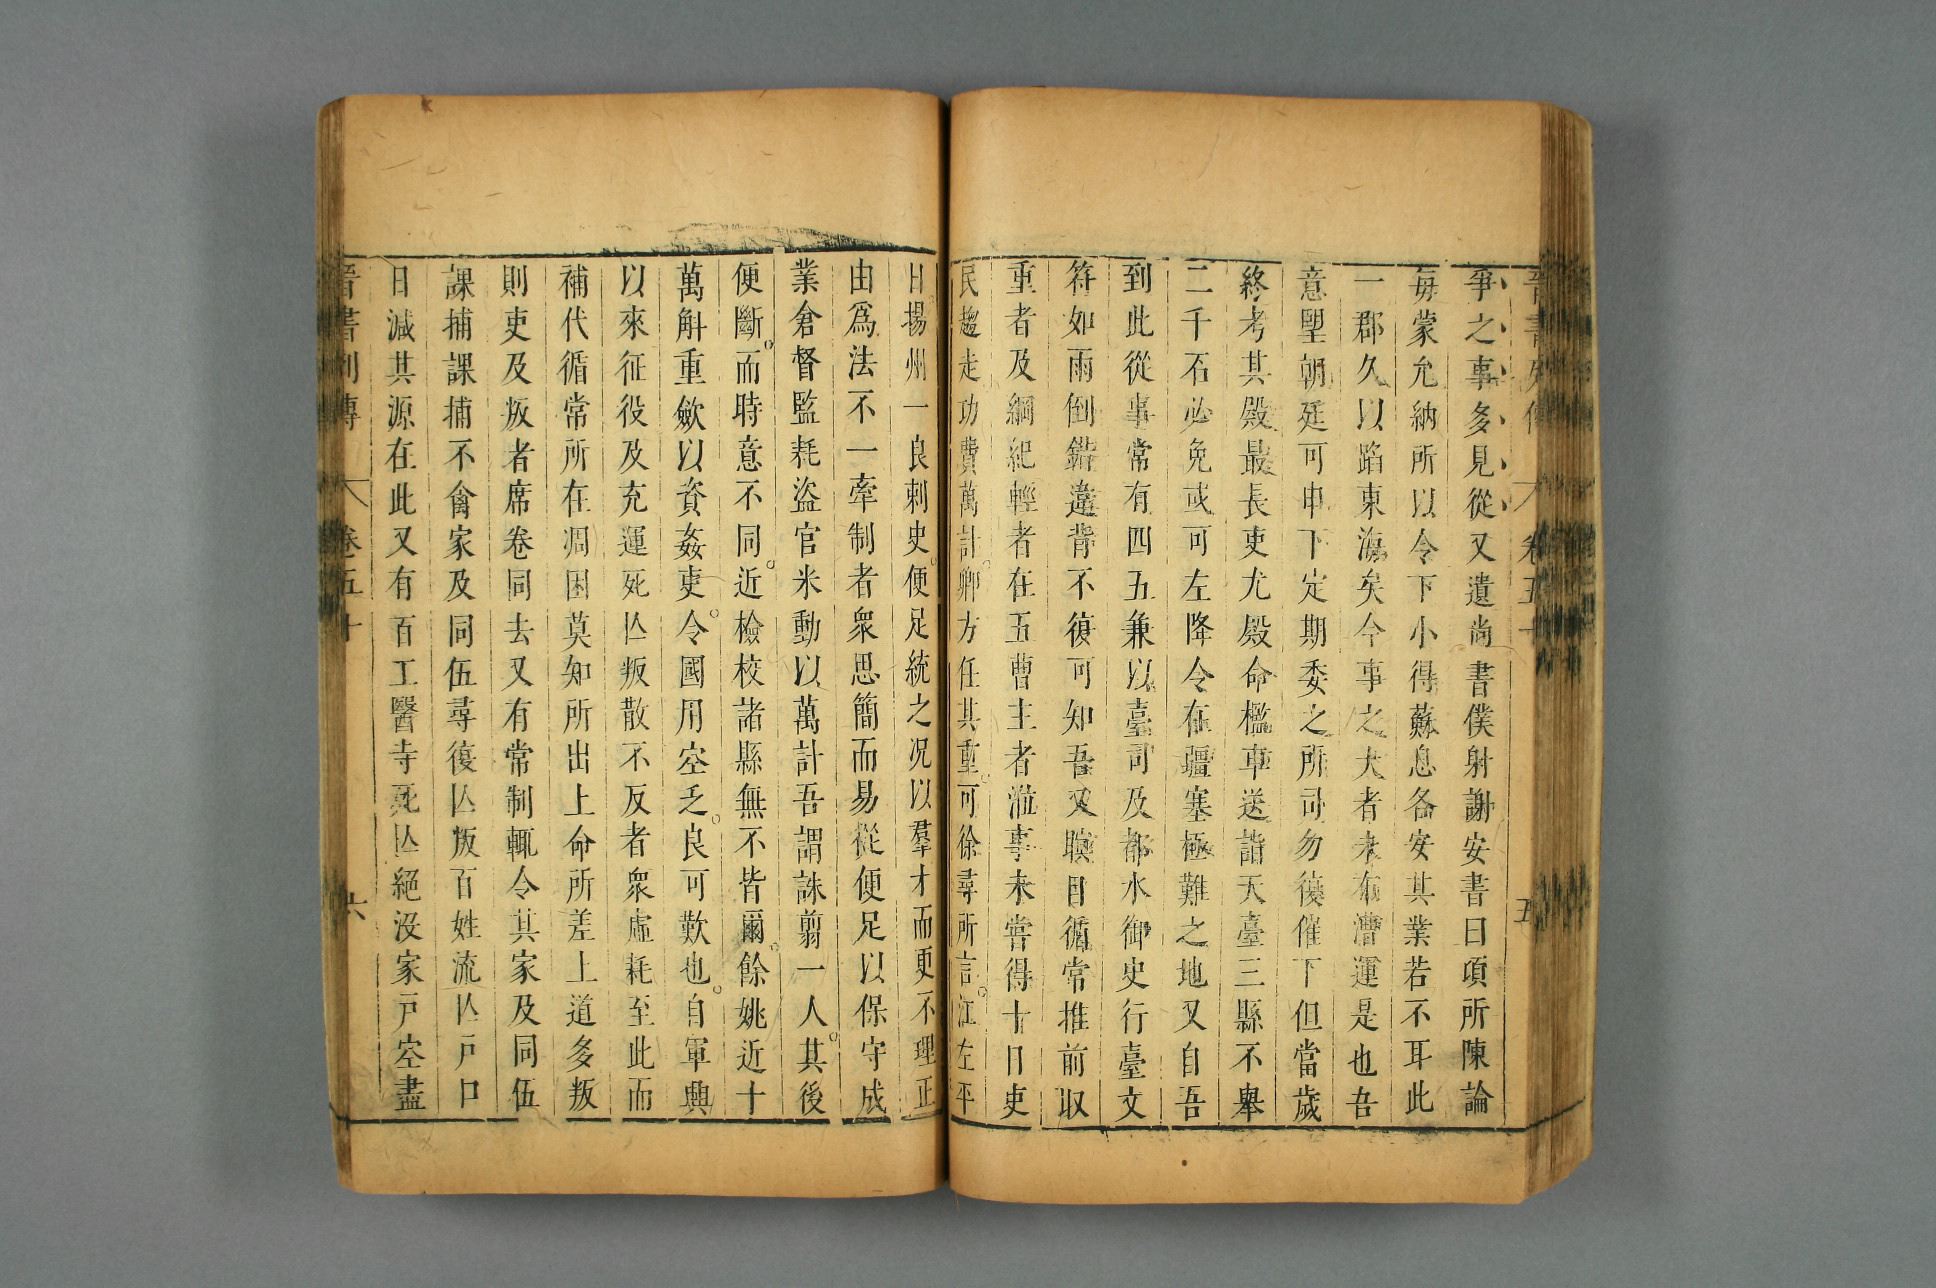 晉書列傳 卷五十 五
爭之事多見從又遺尚書僕射謝安書曰項所陳論
每蒙允納所以令下小得蘇息各安其業若不耳此
一郡久以蹈東海矣今事之大者未布漕運是也吾
意朢朝廷可申下定期委之所司勿復催下但當歲
終考其殿最長吏尤殿命檻車送詣天臺三縣不舉
二千石必免或可左降令在疆塞極難之地又自吾
到此從事常有四五兼以臺司及都水御史行臺文
符如雨倒錯違背不復可知吾又瞑目循常推前取
重者及綱紀輕者在五曹主者涖事未嘗得十日吏
民趨走功費萬計卿方任其重可徐尋所言江左平
日揚州一良刺史便足統之况以羣才而更不理正
由爲法不一牽制者衆思簡而易從便足以保守成
業倉督監耗盜官米動以萬計吾謂誅翦一人其後
便斷而時意不同近檢校諸縣無不皆爾餘姚近十
萬斛重斂以資姦吏令國用空乏良可歎也自軍興
以來征役及充運死亾叛散不反者衆虛耗至此而
補代循常所在凋困莫知所出上命所差上道多叛
則吏及叛者席卷同去又有常制輒令其家及同伍
課捕課捕不禽家及同伍尋復亾叛百姓流亾戸口
日減其源在此又有百工醫寺死亾絕沒家戸空盡
晉書列傳 卷五十 六